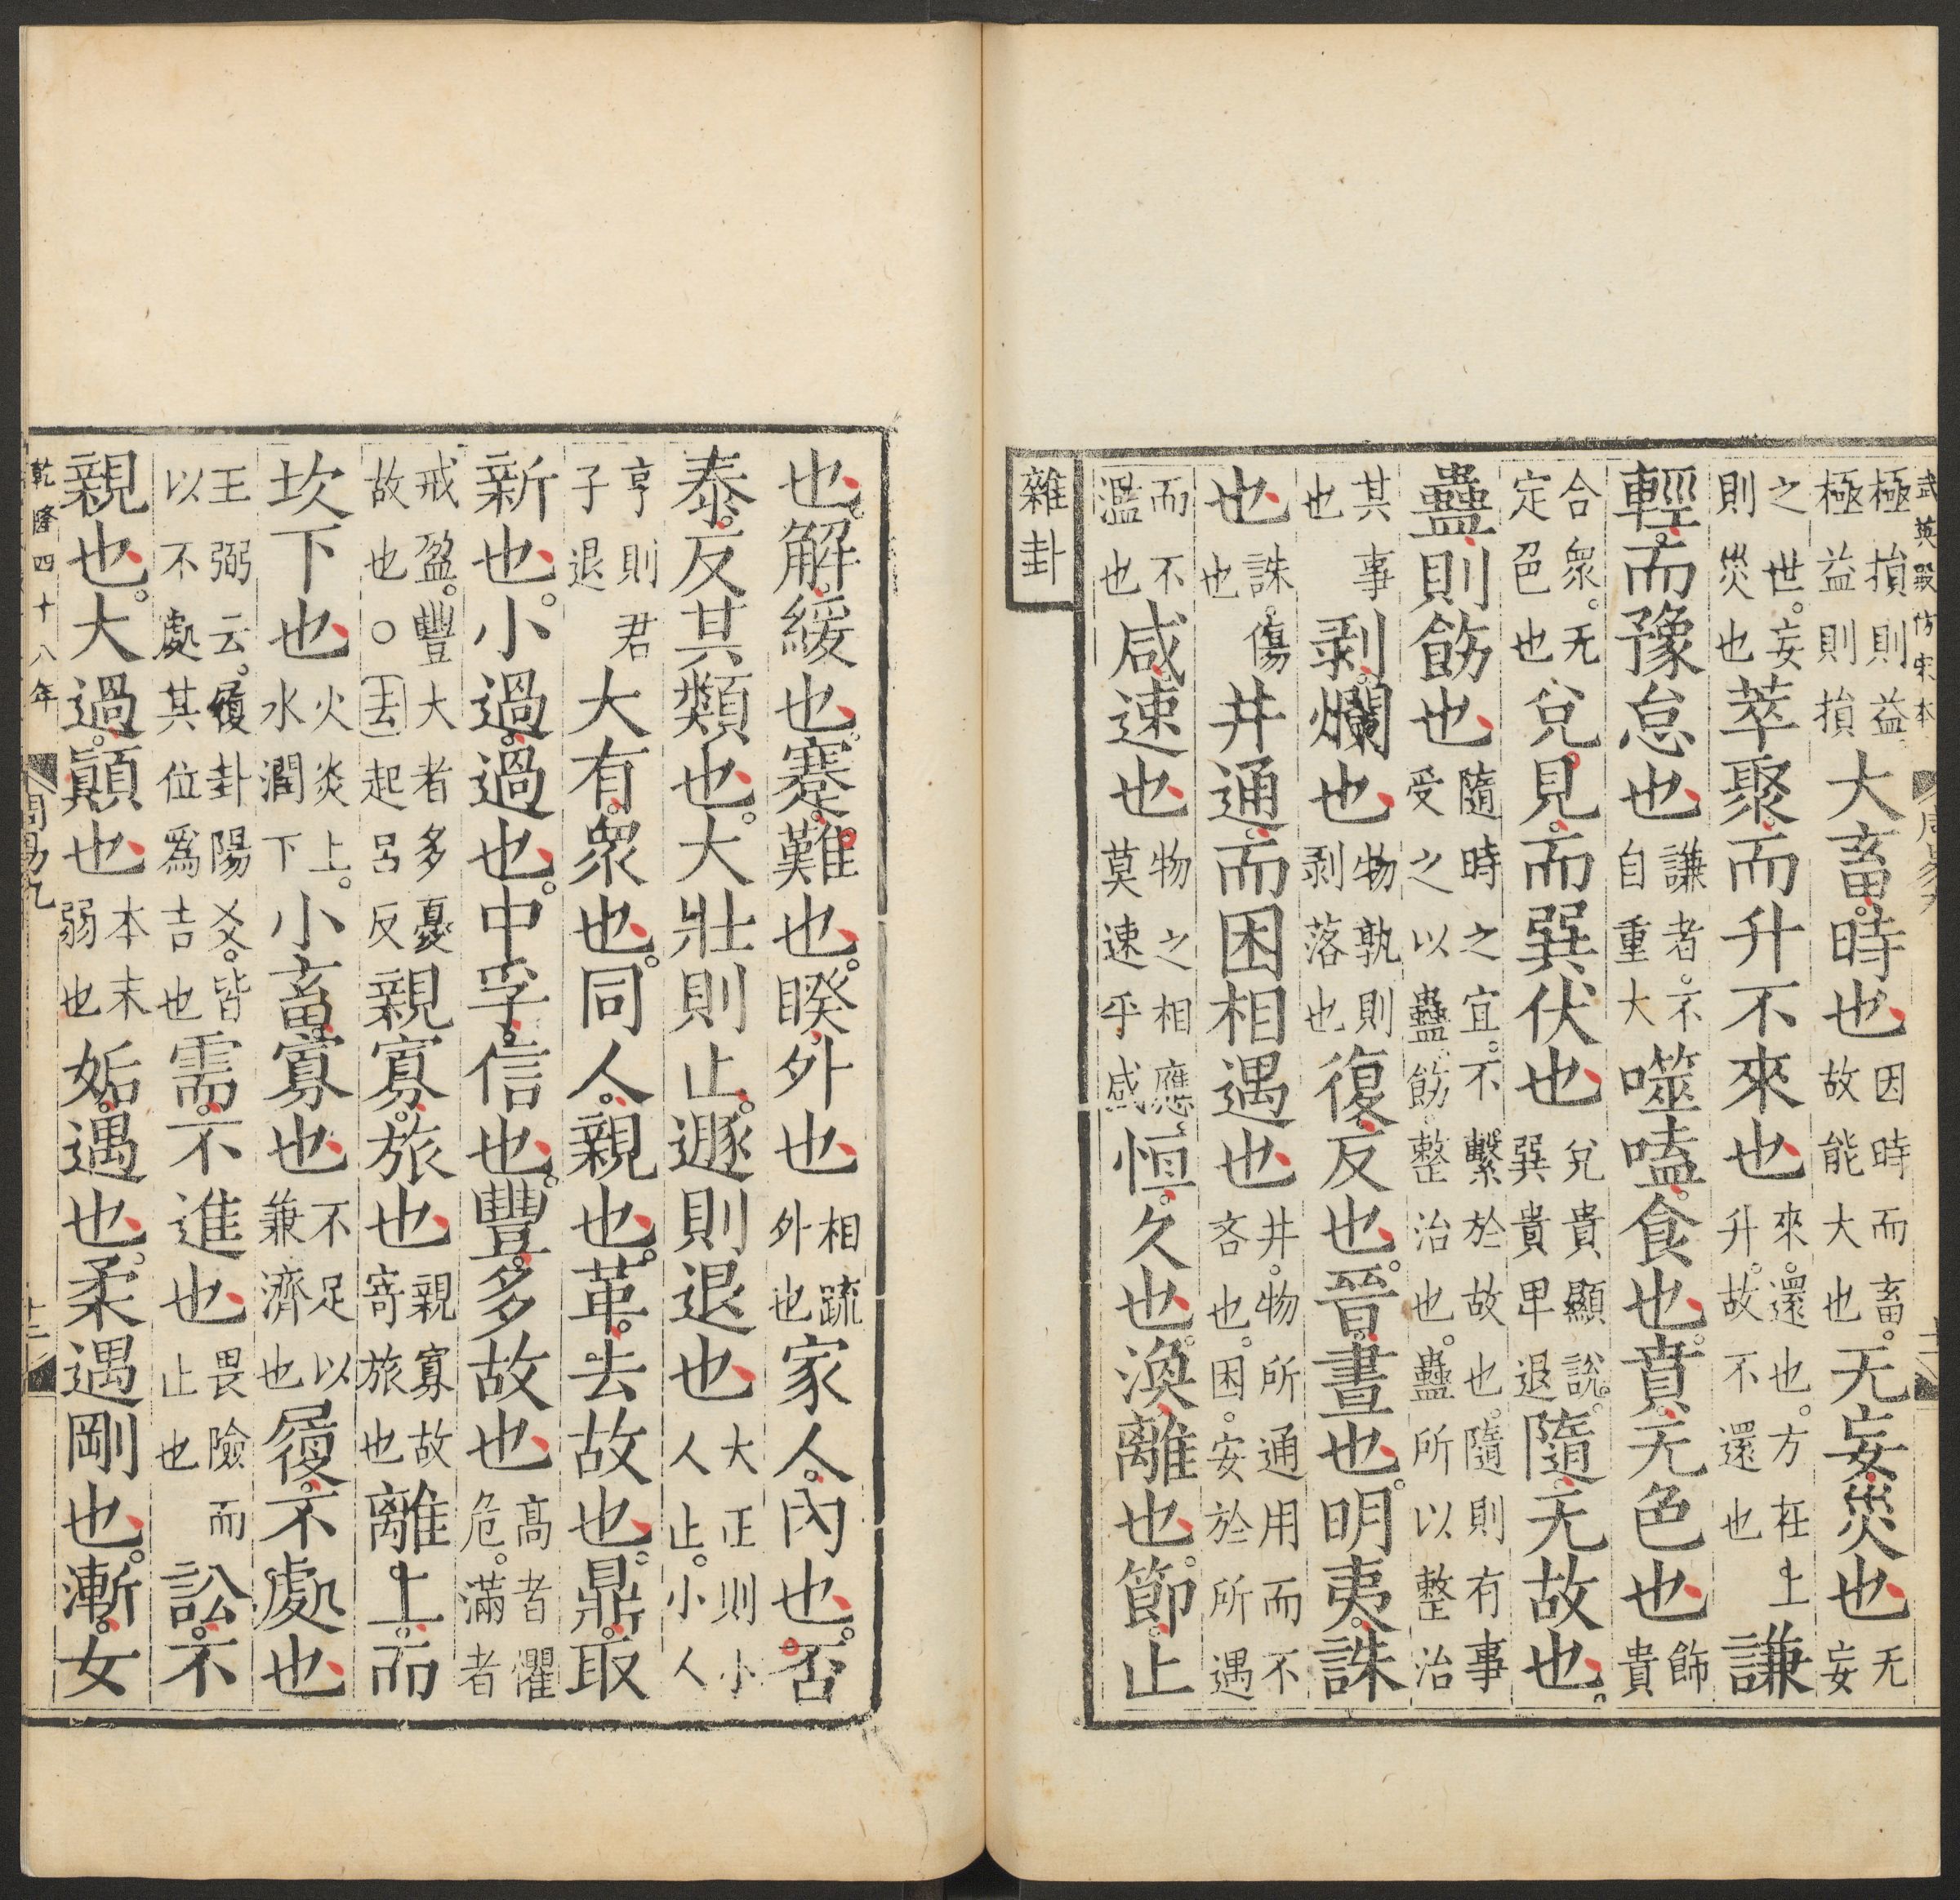 武英殿仿宋本
周易九
十一
極損則益極益則損大畜時也因時而畜故能大也无妄災也无妄
之世妄則災也萃聚而升不來也來還也方在上升故不還也謙
輕而豫怠也謙者不自重大噬嗑食也賁无色也飾貴
合衆无定色也兌見而巽伏也兌貴顯說巽貴卑退隨无故也
蠱則飭也隨時之宜不繫於故也隨則有事受之以蠱飭整治也蠱所以整治
其事也剥爛也物孰則剥落也復反也晉晝也明夷誅
也誅傷也井通而困相遇也井物所通用而不吝也困安於所遇
而不濫也咸速也物之相應莫速乎咸恒久也渙離也節止
雜卦
也解緩也蹇難也睽外也相疏外也家人內也否
泰反其類也大壯則止遯則退也大正則小人止小人
亨則君子退大有衆也同人親也革去故也鼎取
新也小過過也中孚信也豐多故也高者懼危滿者
戒盈豐大者多憂故也○去起呂反親寡旅也親寡故寄旅也離上而
坎下也火炎上水潤下小畜寡也不足以兼濟也履不處也
王弼云履卦陽爻皆以不處其位爲吉也需不進也畏險而止也訟不
親也大過顚也本末弱也姤遇也柔遇剛也漸女
乾隆四十八年
周易九
十二